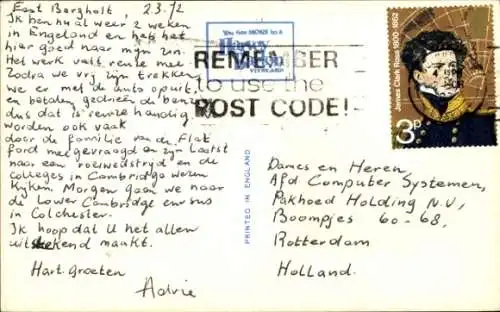 East Bergholt 2.3.72
Ik ben nu al weer 2 weken
in Engeland en heb het
hier goed naar mijn zin.
Het werk valt reuze mee
Zodra we vrij zijn trekken
we er met de auto op uit.
en betalen gedrieën de benzine
dus dat is reuze handig
worden ook vaak
door de familie van de Flat
ford meegevraagd en zijn laatst
naar een roeiwedstrijd en de
colleges in Cambridge wezen
kijken. Morgen gaan we naar
de Lower Cambridge cursus
in Colchester.
Ik hoop dat U het allen
uitstekend maakt.
Hart. Groeten
Advie
REMEMBER
to use the
POST CODE!
PRINTED IN ENGLAND
James Clark Ross 1800-1862
3P
Dames en Heren
Afd Computer Systemen,
Pakhoed Holding N.V,
Boompjes 60-68,
Rotterdam
Holland.